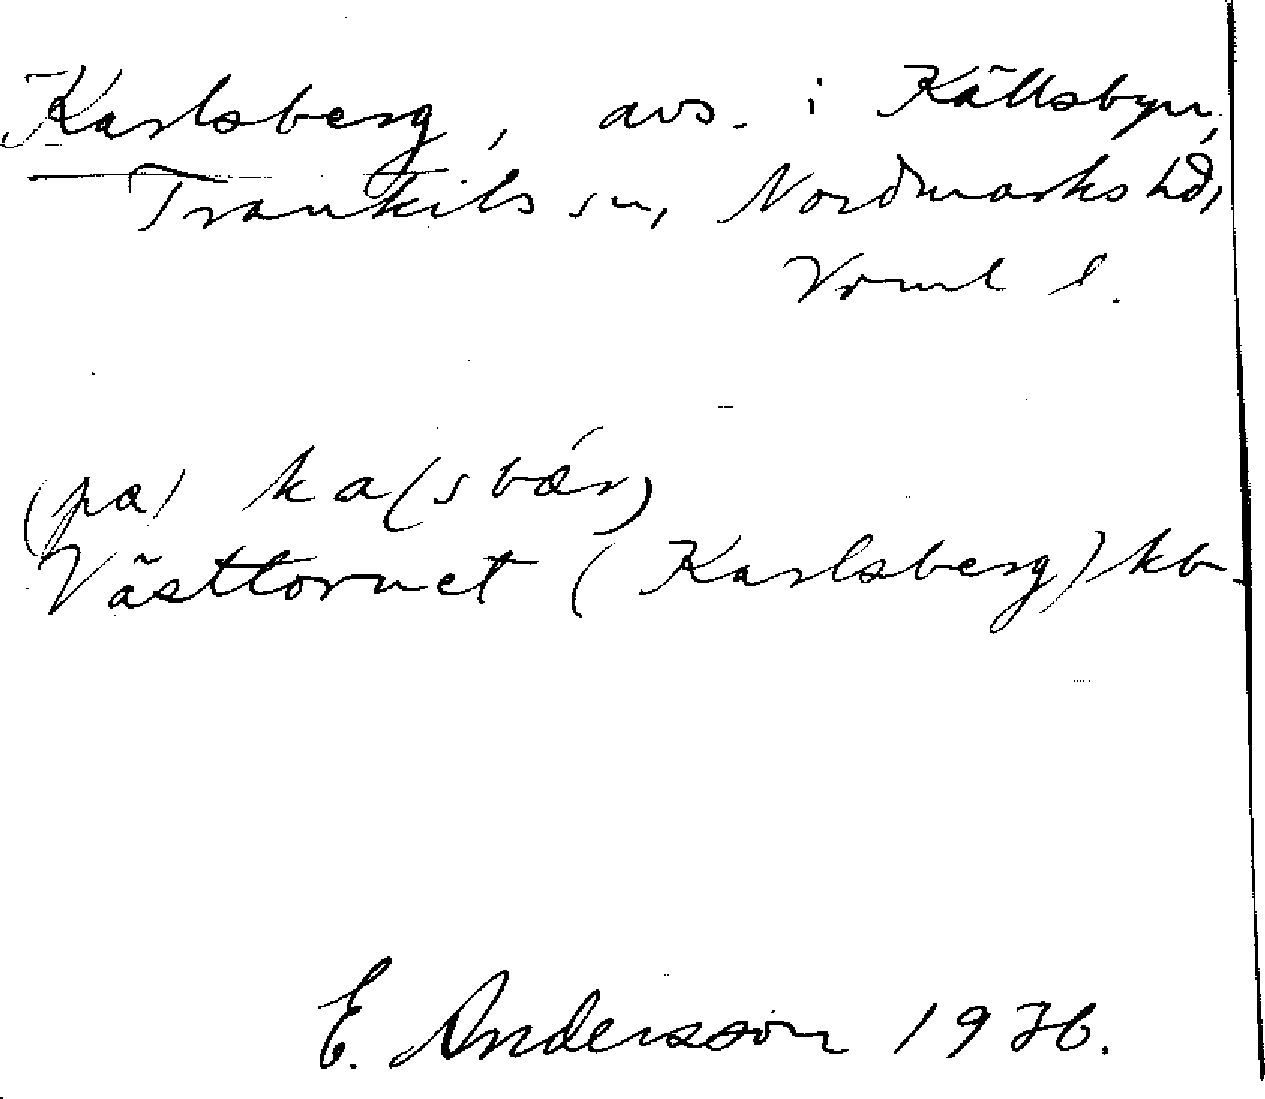 Karlsberg, avs. i Källsbyn,
Trankils sn, Nordmarks hd,
Vrml l.
(pa) ka(sbær)
Västtornet (Karlsberg) kb.
E. Andersson 1976.